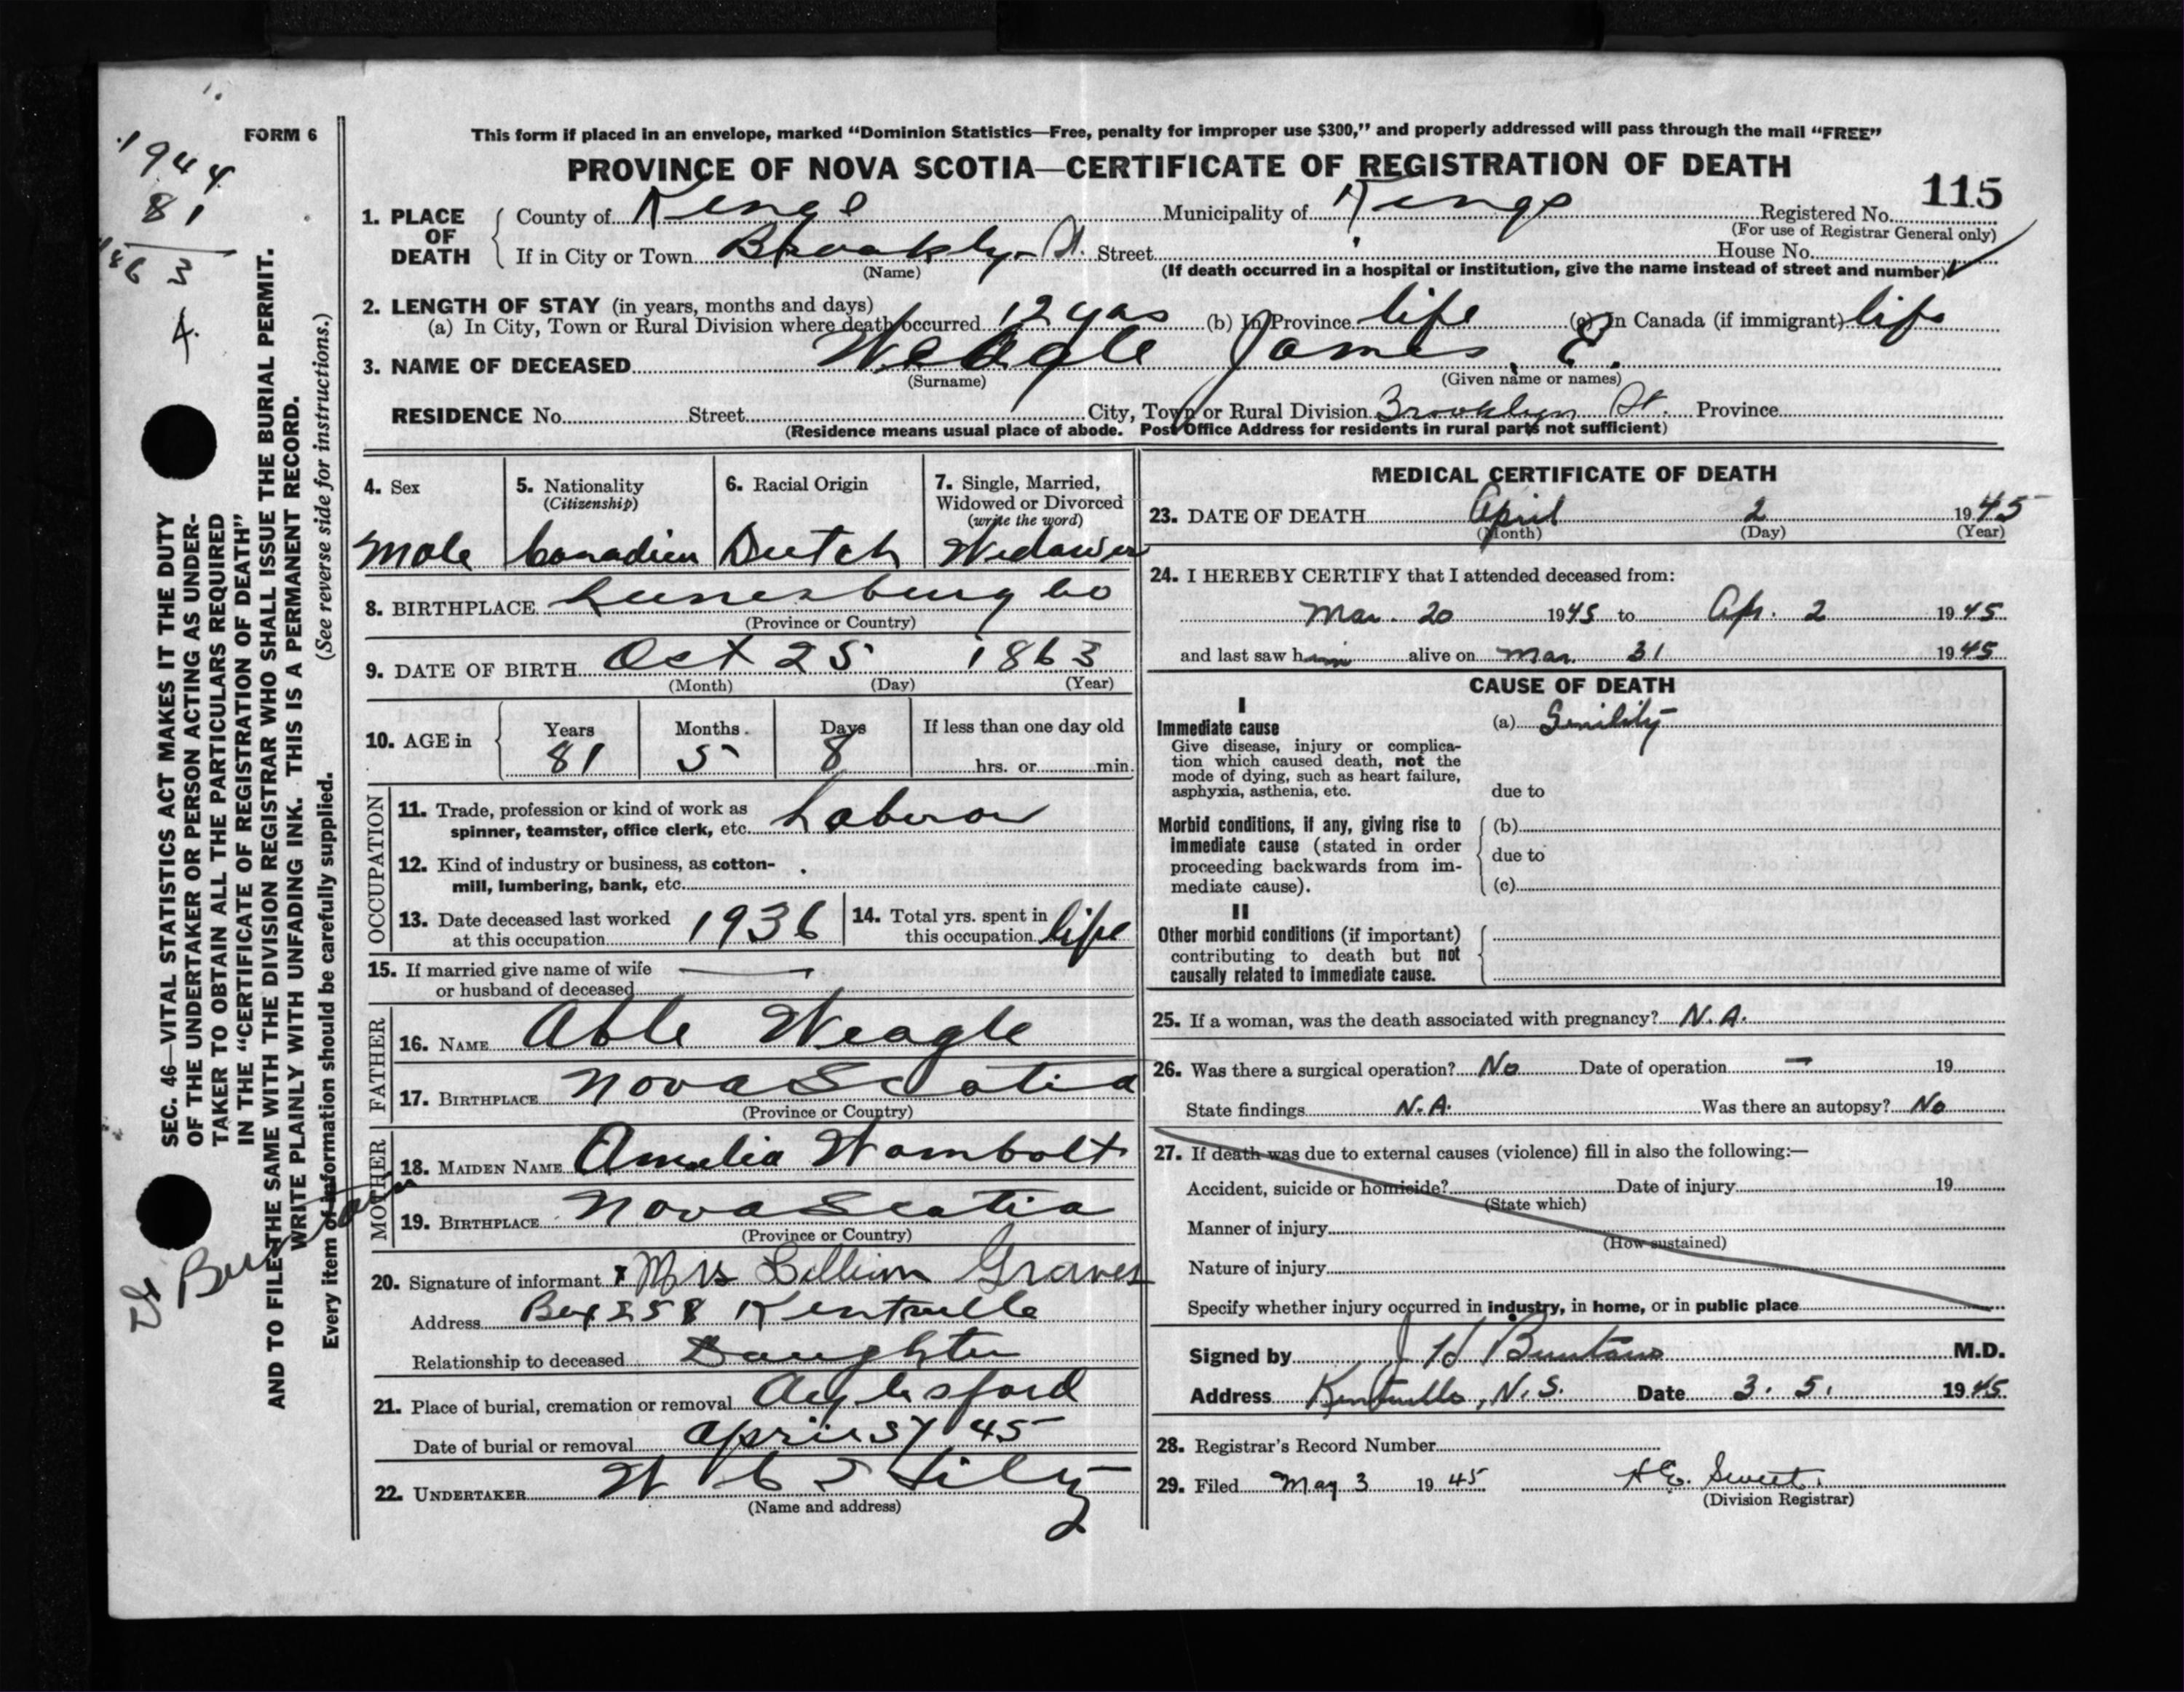 1944
81
1863
4.
FORM 6
This form if placed in an envelope, marked “Dominion Statistics—Free, penalty for improper use $300,” and properly addressed will pass through the mail “FREE”
PROVINCE OF NOVA SCOTIA—CERTIFICATE OF REGISTRATION OF DEATH
115
1. PLACE OF DEATH
County of Kings Municipality of Kings Registered No.
(For use of Registrar General only)
If in City or Town Brooklyn St. Street House No.
(Name) (If death occurred in a hospital or institution, give the name instead of street and number)
2. LENGTH OF STAY (in years, months and days)
(a) In City, Town or Rural Division where death occurred 12 yrs (b) In Province life (c) In Canada (if immigrant) life
3. NAME OF DECEASED Weagle James E.
(Surname) (Given name or names)
RESIDENCE No. Street City, Town or Rural Division Brooklyn St. Province
(Residence means usual place of abode. Post Office Address for residents in rural parts not sufficient)
4. Sex
Male
5. Nationality
(Citizenship)
Canadian
6. Racial Origin
Dutch
7. Single, Married,
Widowed or Divorced
(write the word)
Widower
8. BIRTHPLACE Lunenburg Co
(Province or Country)
9. DATE OF BIRTH Oct 25 1863
(Month) (Day) (Year)
10. AGE in
Years Months Days If less than one day old
81 5 8 hrs. or min.
OCCUPATION
11. Trade, profession or kind of work as
spinner, teamster, office clerk, etc. Laborer
12. Kind of industry or business, as cotton-
mill, lumbering, bank, etc.
13. Date deceased last worked
at this occupation 1936
14. Total yrs. spent in
this occupation life
15. If married give name of wife
or husband of deceased
FATHER
16. NAME Able Weagle
17. BIRTHPLACE Nova Scotia
(Province or Country)
MOTHER
18. MAIDEN NAME Amelia Wambolt
19. BIRTHPLACE Nova Scotia
(Province or Country)
20. Signature of informant x Mrs Lillian Graves
Address Box 258 Kentville
Relationship to deceased Daughter
21. Place of burial, cremation or removal Aylesford
Date of burial or removal April 5/45
22. UNDERTAKER W
(Name and address)
MEDICAL CERTIFICATE OF DEATH
23. DATE OF DEATH April 2 1945
(Month) (Day) (Year)
24. I HEREBY CERTIFY that I attended deceased from:
Mar. 20 1945 to Ap. 2 1945
and last saw him alive on Mar. 31 1945
CAUSE OF DEATH
I
Immediate cause
Give disease, injury or complica-
tion which caused death, not the
mode of dying, such as heart failure,
asphyxia, asthenia, etc.
(a) Senility
due to
Morbid conditions, if any, giving rise to
immediate cause (stated in order
proceeding backwards from im-
mediate cause).
(b)
due to
(c)
II
Other morbid conditions (if important)
contributing to death but not
causally related to immediate cause.
25. If a woman, was the death associated with pregnancy? N.A.
26. Was there a surgical operation? No Date of operation — 19
State findings N.A. Was there an autopsy? No
27. If death was due to external causes (violence) fill in also the following:—
Accident, suicide or homicide? Date of injury 19
(State which)
Manner of injury
(How sustained)
Nature of injury
Specify whether injury occurred in industry, in home, or in public place
Signed by J H Buntain M.D.
Address Kentville, N.S. Date 3. 5. 1945
28. Registrar's Record Number
29. Filed May 3 1945 Sweet
(Division Registrar)
SEC. 46—VITAL STATISTICS ACT MAKES IT THE DUTY
OF THE UNDERTAKER OR PERSON ACTING AS UNDER-
TAKER TO OBTAIN ALL THE PARTICULARS REQUIRED
IN THE “CERTIFICATE OF REGISTRATION OF DEATH”
AND TO FILE THE SAME WITH THE DIVISION REGISTRAR WHO SHALL ISSUE THE BURIAL PERMIT.
WRITE PLAINLY WITH UNFADING INK. THIS IS A PERMANENT RECORD.
Every item of information should be carefully supplied. (See reverse side for instructions.)
Dr Buntain